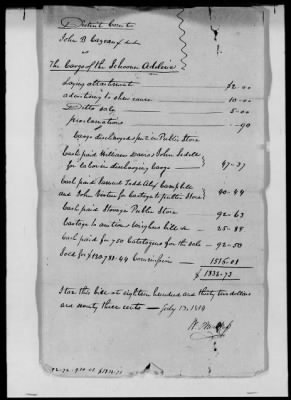 District Court
John B
vs
The Cargo of the Schooner Adeline
Laying attachment $2-00
advertising to shew cause 10-00
Ditto sale 5-00
proclamations -90
Cargo discharged & put in Public Store
Cash paid William Davis John
for labor in discharging Cargo 47-37
Cash paid Todd Alex Campbell
and John for Cartage to public Store 40-44
Cash paid Storage Public Store 92-63
Cartage to auction & weighers bill &c 25-88
Cash paid for 750 Catalogues for the sale 92-50
Sold for $120,788-44 Commission 1516-01
$ 1832-73
I tax this bill at eighteen hundred and thirty two dollars
and seventy three cents — July 13, 1814